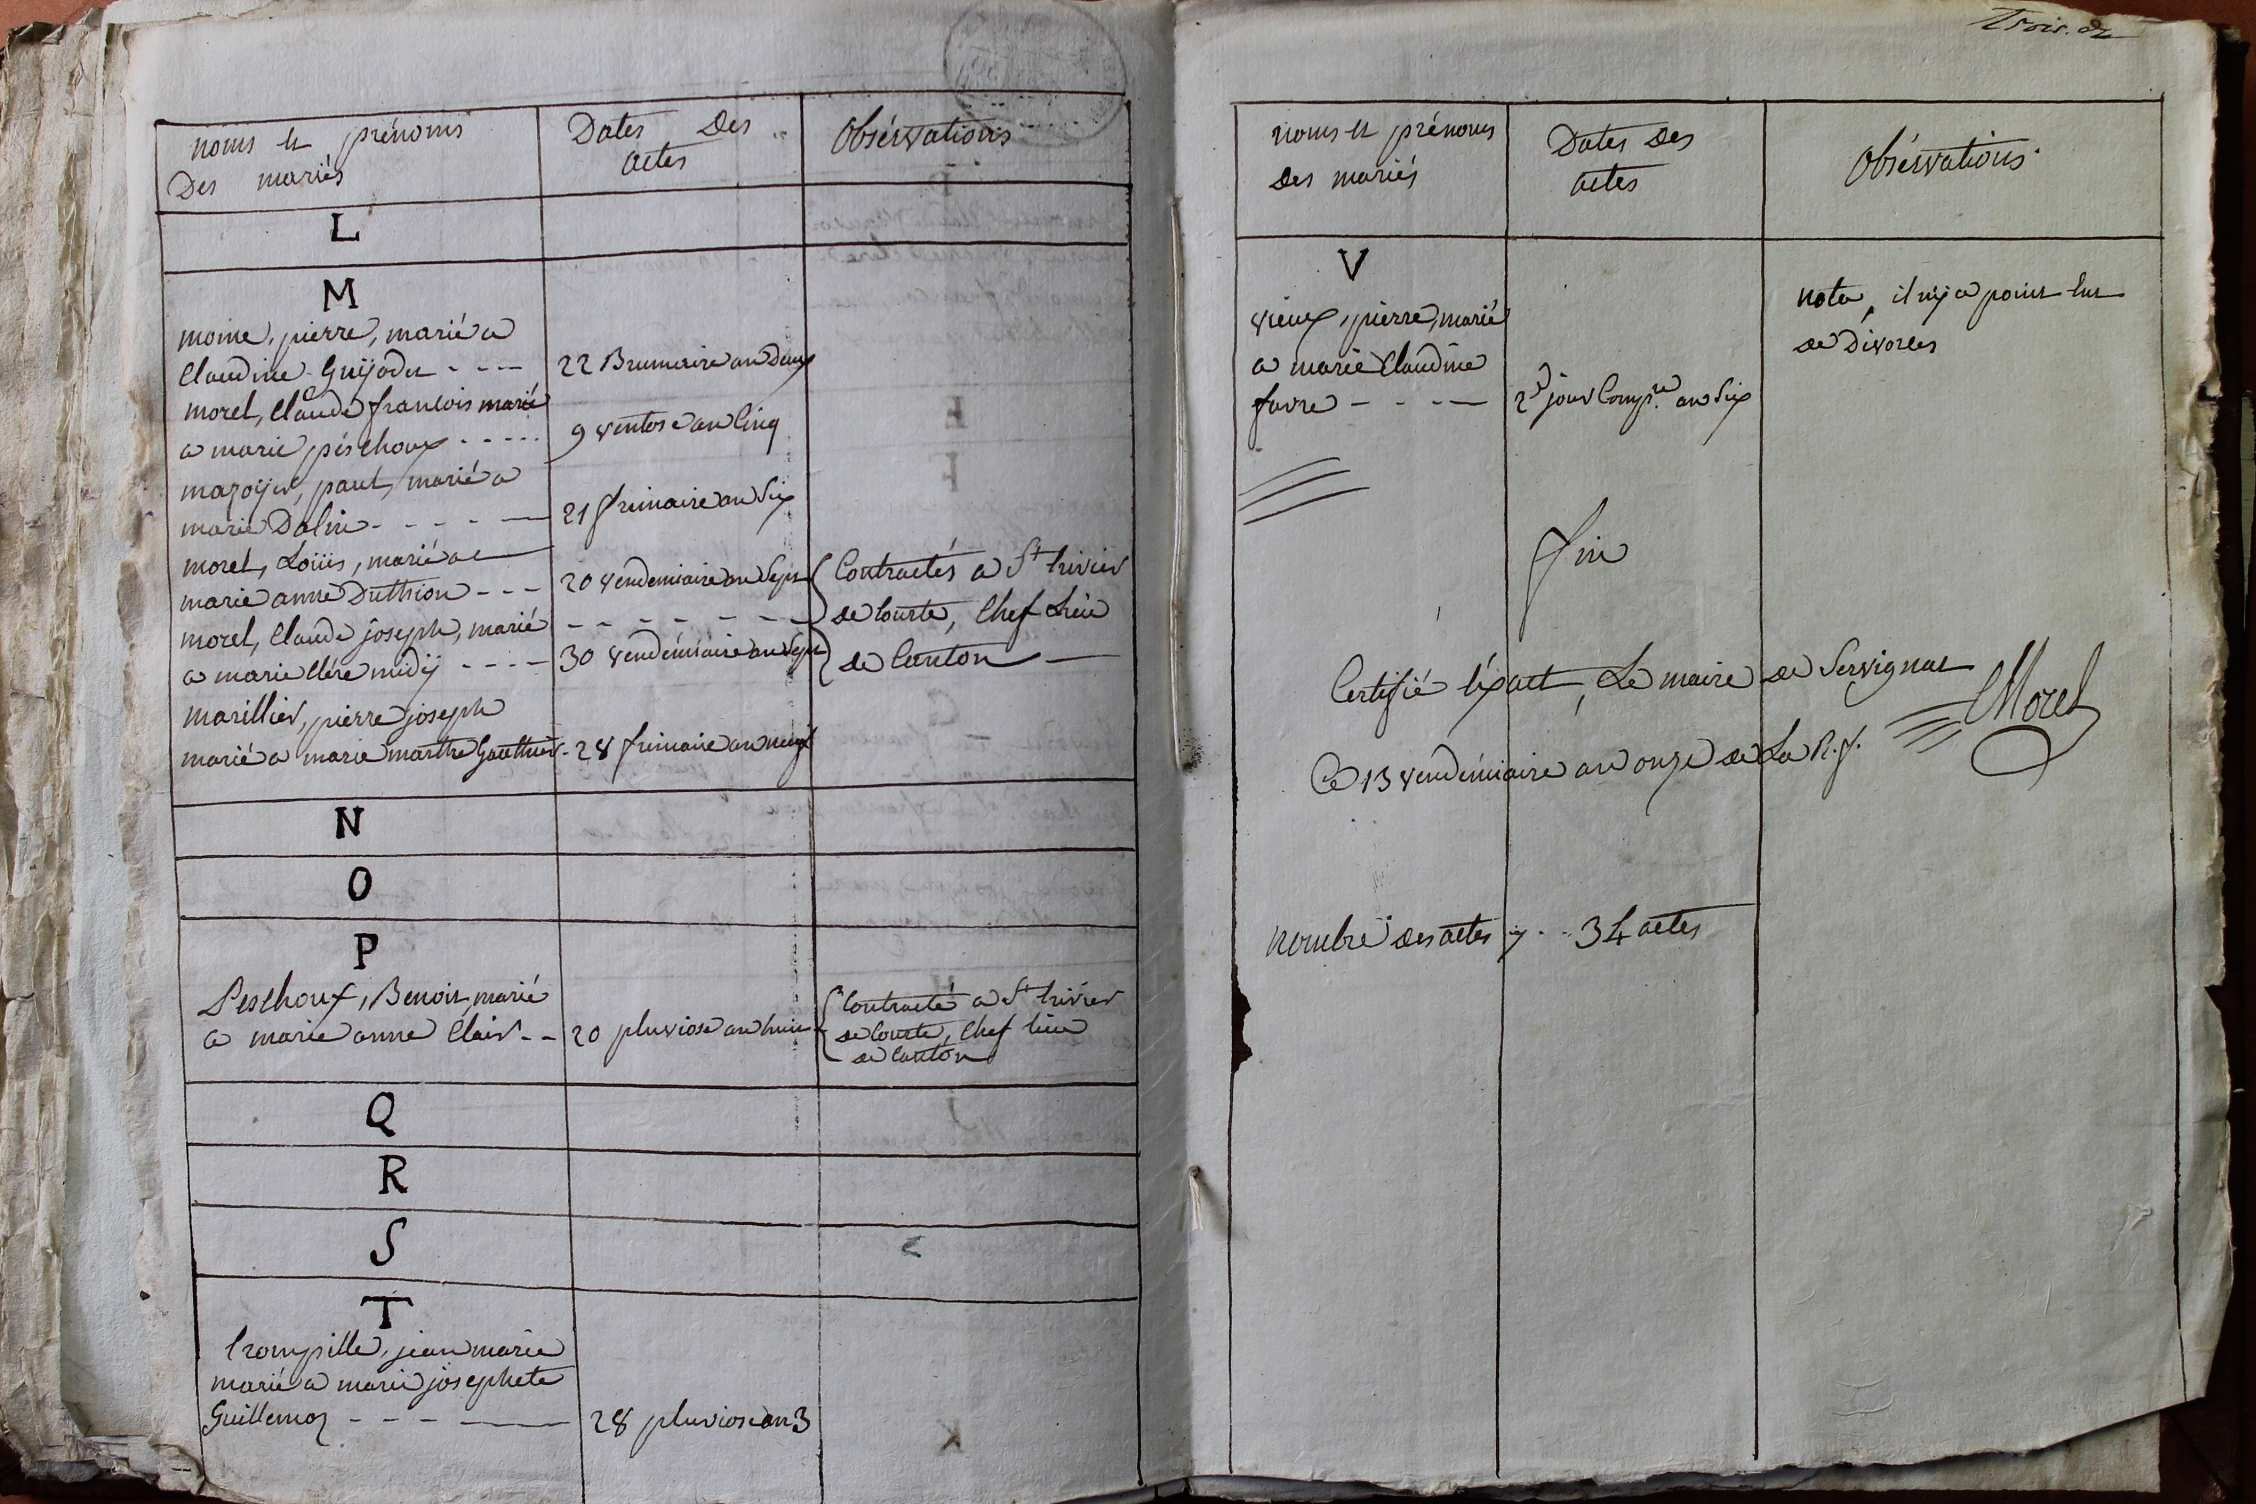 noms et prénoms
Des mariés
Dates Des
actes
Obsérvations
L
M
moine, pierre, marié a
Claudine Guÿodet - - - -
22 Brumaire an Deux
morel, Claude françois marié
a marie péschoux - - - - -
9 ventose an Cinq
mazoÿer, paul, marié a
marie Dalin - - - - -
21 frimaire an Six
morel, Loüis, marié a
marie anne Duthion - - -
20 vendemiaire an Sept
Contractés a St trivier
morel, Claude joseph, marié
- - - - - - -
de Courte, Chef Lieu
a marie Clére midÿ - - - -
30 vendémiaire an Sept
de Canton
marillier, pierre joseph
marié a marie marthe Gauthier -
28 frimaire an neuf
N
O
P
Peschoux, Benoit, marié
a marie anne Clair - -
20 pluviose an huit
Contracté a St trivier
de Courte, Chef lieu
de Canton
Q
R
S
T
trompille, jean marie
marié a marie josephete
Guillemoz - - - -
28 pluviose an 3
Trois. &
noms et prénoms
Des mariés
Dates Des
actes
Obsérvations
V
vieux, pierre, marié
a marie Claudine
favre - - - -
2e jour Compre. an Six
nota, il n'ÿ a point eut
de Divorces
fin
Certifié éxact, Le maire de Servignat
Morel
Ce 13 vendémiaire an onze de La R. f.
nombre des actes - - 34 actes